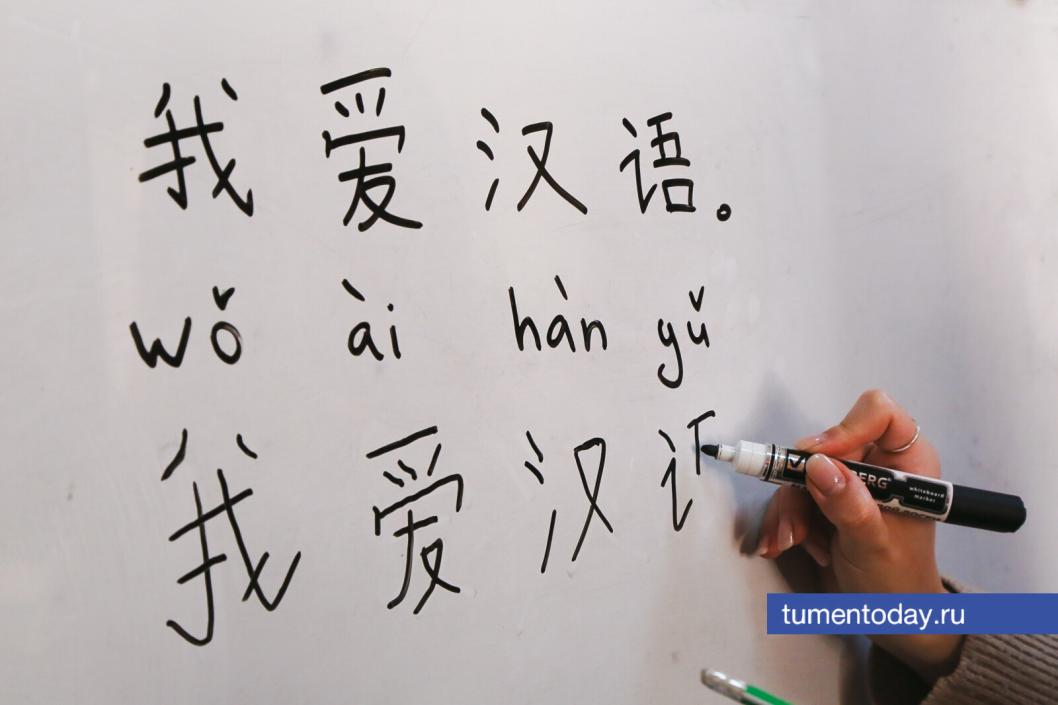 我爱汉语。
wǒ ài hàn yǔ
我爱汉
ERG®
whiteboard
marker
tumentoday.ru